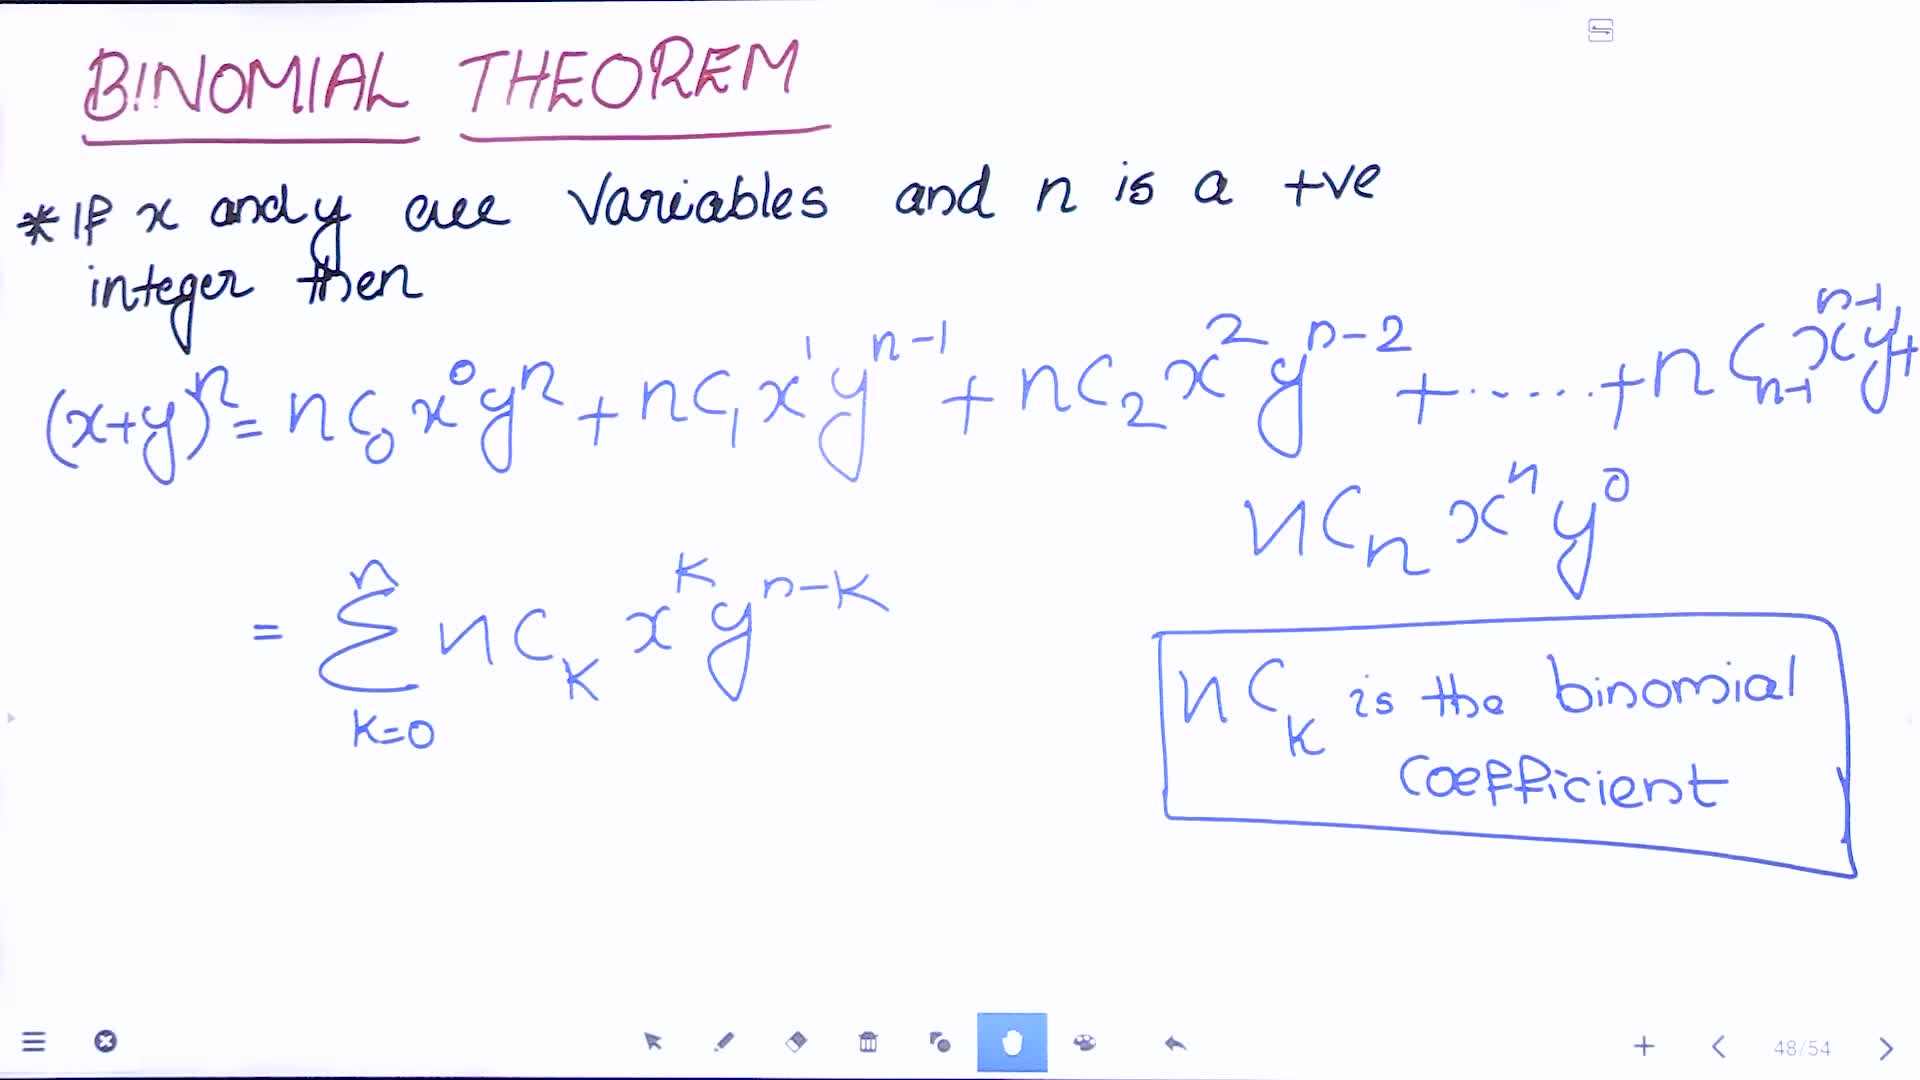 BINOMIAL THEOREM
* If x and y are variables and n is a +ve
integer then
(x+y)^n = nC_0 x^0 y^n + nC_1 x^1 y^{n-1} + nC_2 x^2 y^{n-2} + ...... + nC_{n-1} x^{n-1} y^1 +
nC_n x^n y^0
= \sum_{k=0}^{n} nC_k x^k y^{n-k}
nC_k is the binomial
coefficient
48/54